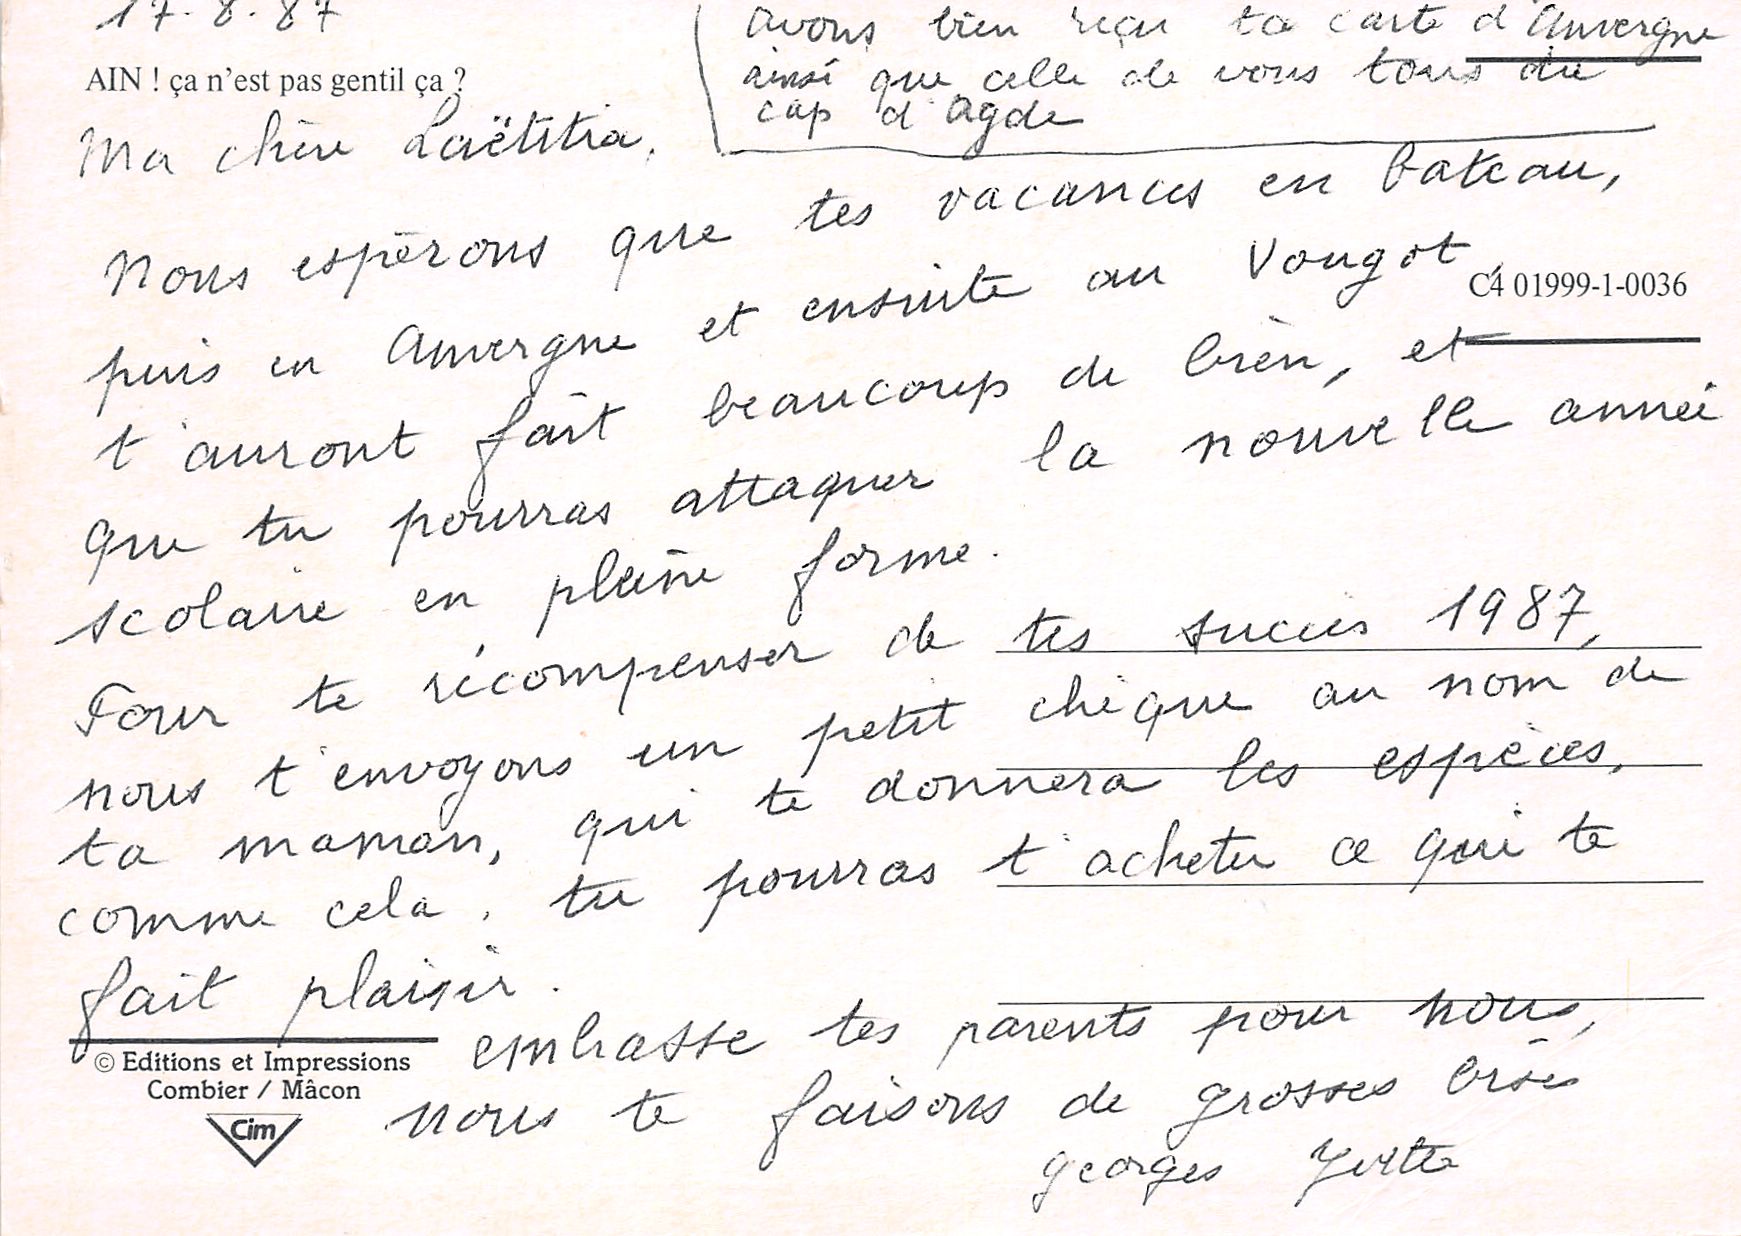 17.8.87
avons bien reçu ta carte d'Auvergne
ainsi que celle de vous tous du
cap d'Agde
AIN ! ça n'est pas gentil ça ?
Ma chère Laëtitia,
Nous espérons que tes vacances en bateau,
puis en Auvergne et ensuite au Vougot,
C4 01999-1-0036
t'auront fait beaucoup de bien, et
que tu pourras attaquer la nouvelle année
scolaire en pleine forme.
Pour te récompenser de tes succès 1987,
nous t'envoyons un petit chèque au nom de
ta maman, qui te donnera les espèces,
comme cela, tu pourras t'acheter ce qui te
fait plaisir.
embrasse tes parents pour nous,
nous te faisons de grosses bises
Georges Yvette
© Editions et Impressions
Combier / Mâcon
Cim